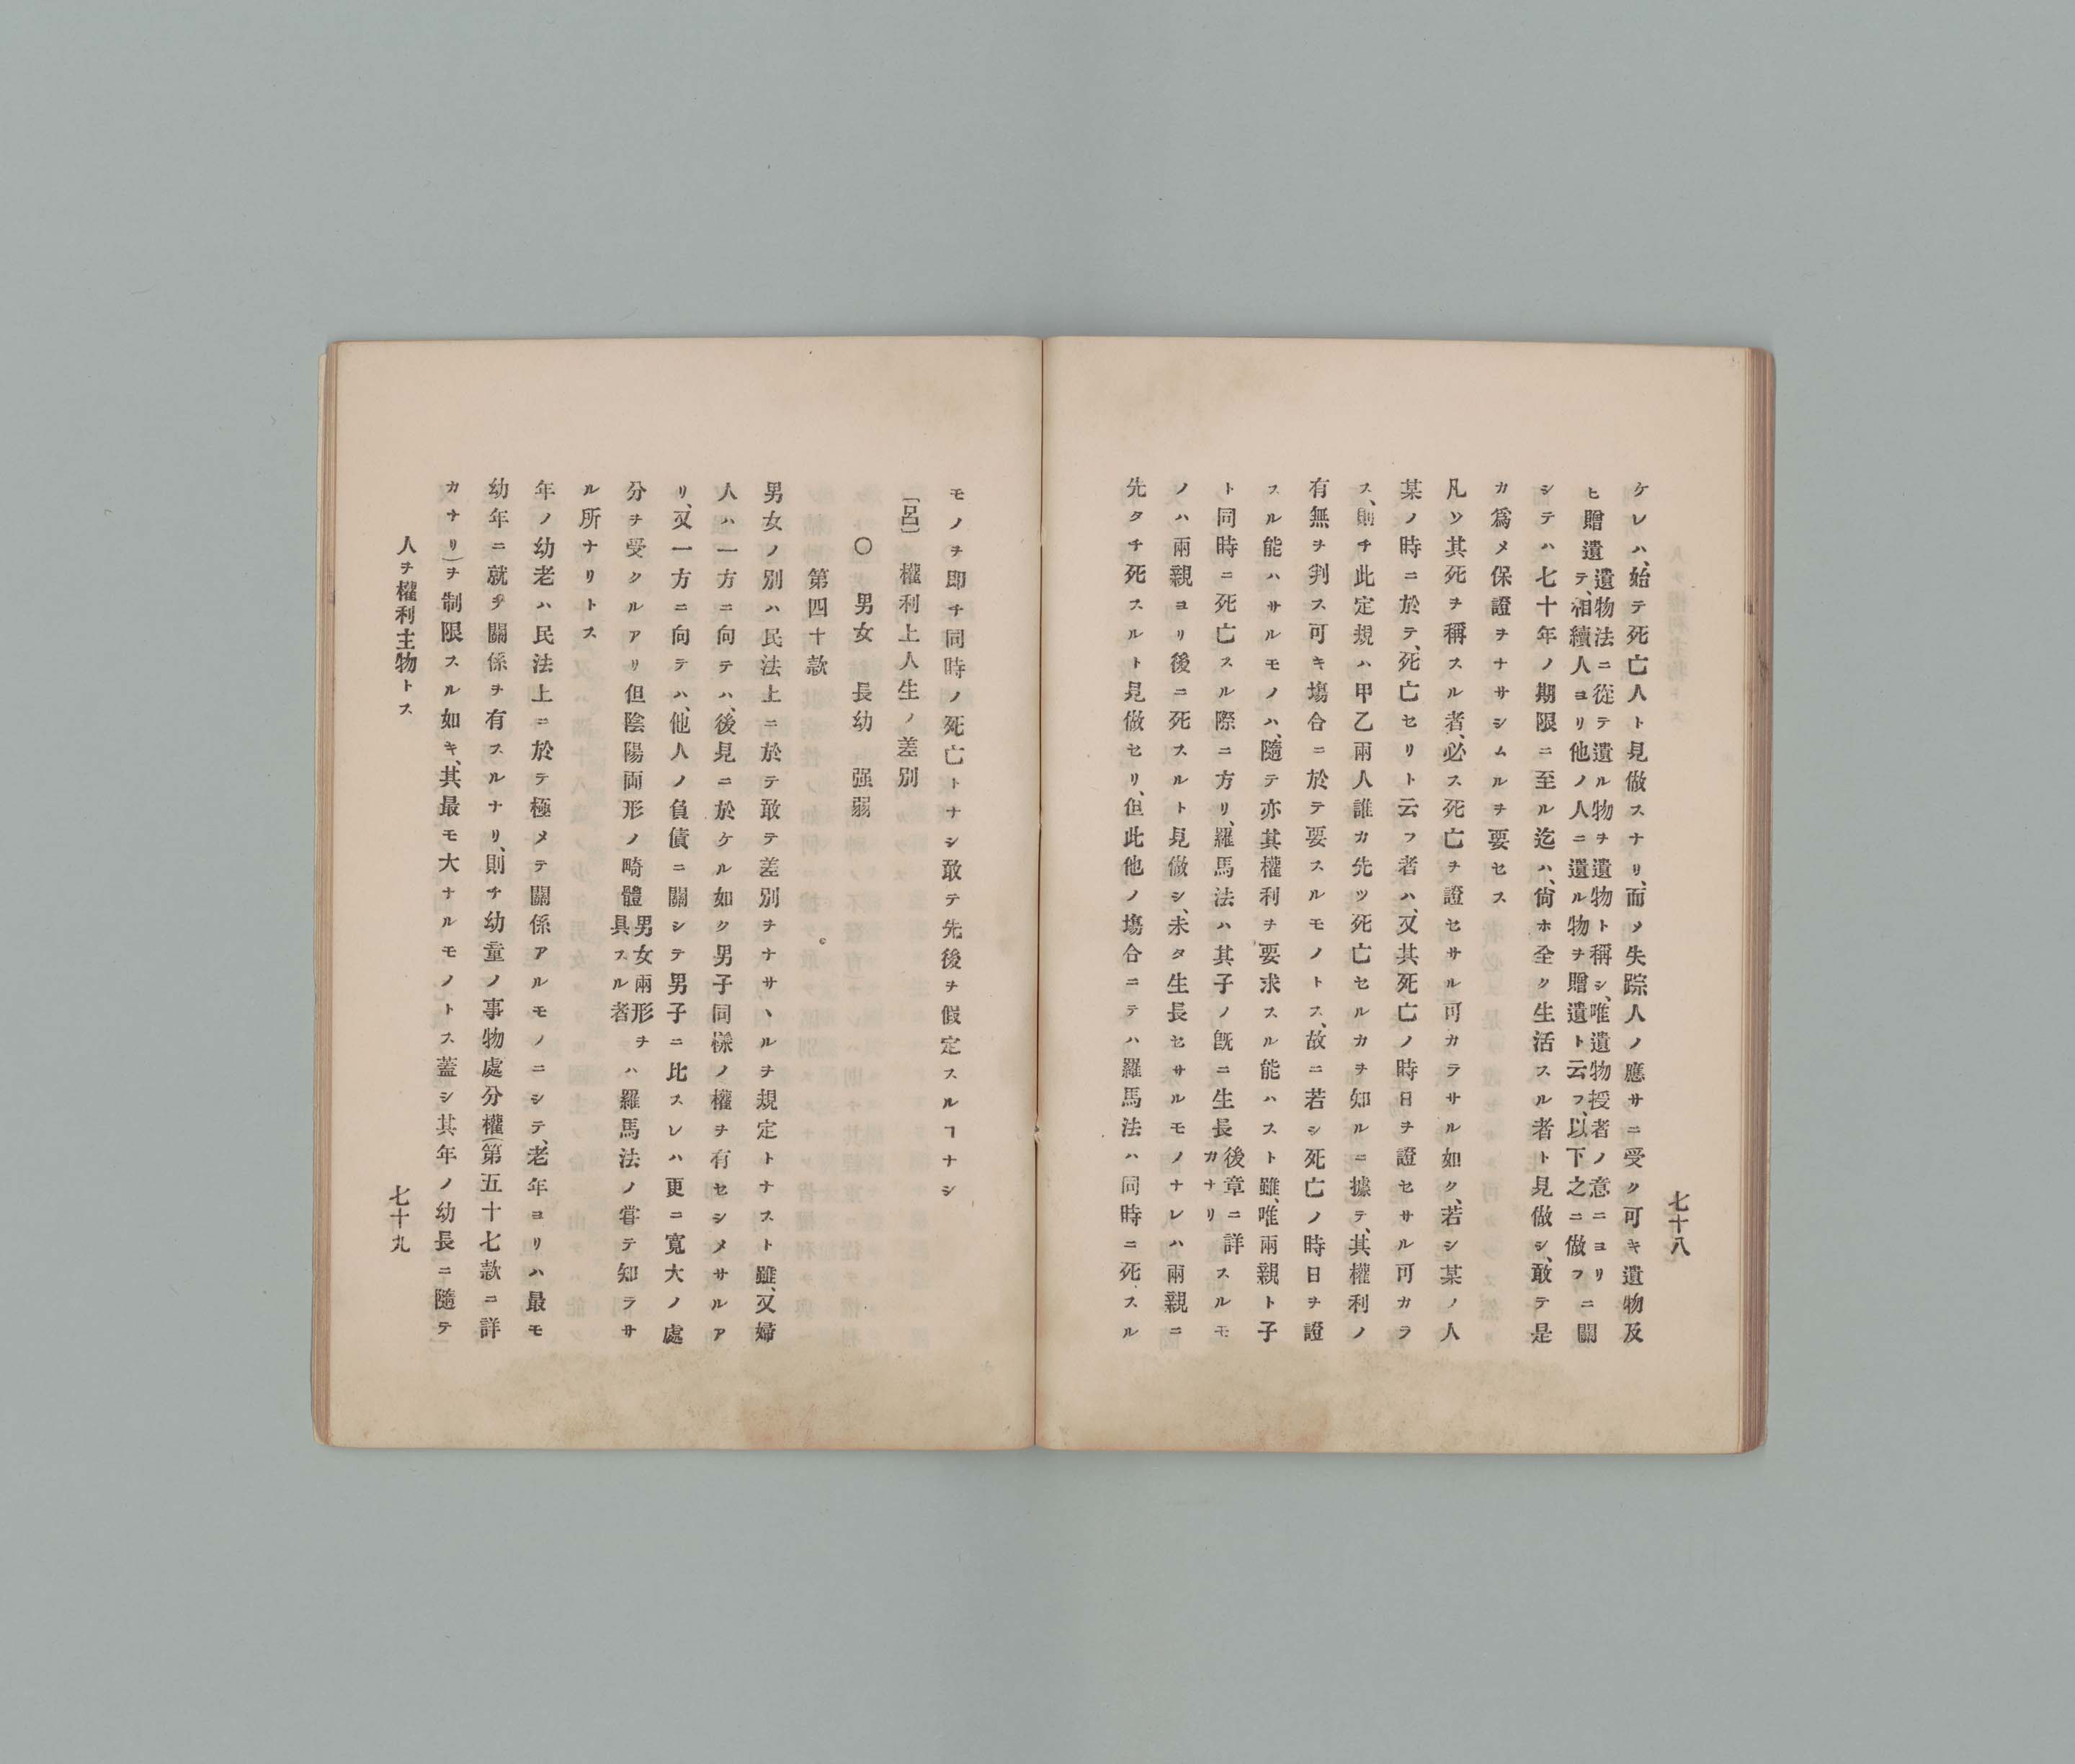 七十八
ケレハ、始テ死亡人ト見做スナリ、而メ失踪人ノ應サニ受ク可キ遺物及
ヒ贈遺
遺物法ニ從テ遺ル物ヲ遺物ト稱シ、唯遺物授者ノ意ニヨリ
テ、相續人ヨリ他ノ人ニ遺ル物ヲ贈遺ト云フ、以下之ニ倣フ
ニ關
シテハ七十年ノ期限ニ至ル迄ハ、尙ホ全ク生活スル者ト見做シ、敢テ是
カ爲メ保證ヲナサシムルヲ要セス
凡ソ其死ヲ稱スル者、必ス死亡ヲ證セサル可カラサル如ク、若シ某ノ人
某ノ時ニ於テ、死亡セリト云フ者ハ、又其死亡ノ時日ヲ證セサル可カラ
ス、則チ此定規ハ甲乙兩人誰カ先ツ死亡セルカヲ知ルニ據テ、其權利ノ
有無ヲ判ス可キ塲合ニ於テ要スルモノトス、故ニ若シ死亡ノ時日ヲ證
スル能ハサルモノハ、隨テ亦其權利ヲ要求スル能ハスト雖、唯兩親ト子
ト同時ニ死亡スル際ニ方リ、羅馬法ハ其子ノ旣ニ生長
後章ニ詳
カナリ
スルモ
ノハ兩親ヨリ後ニ死スルト見做シ、未タ生長セサルモノナレハ兩親ニ
先タチ死スルト見做セリ、但此他ノ塲合ニテハ羅馬法ハ同時ニ死スル
モノヲ卽チ同時ノ死亡トナシ敢テ先後ヲ假定スルヿナシ
「呂」權利上人生ノ差別
〇 男女 長幼 强弱
第四十款
男女ノ別ハ民法上ニ於テ敢テ差別ヲナサヽルヲ規定トナスト雖、又婦
人ハ一方ニ向テハ、後見ニ於ケル如ク男子同樣ノ權ヲ有セシメサルア
リ、又一方ニ向テハ、他人ノ負債ニ關シテ男子ニ比スレハ更ニ寬大ノ處
分ヲ受クルアリ但陰陽両形ノ畸體
男女兩形ヲ
具スル者
ハ羅馬法ノ甞テ知ラサ
ル所ナリトス
年ノ幼老ハ民法上ニ於テ極メテ關係アルモノニシテ、老年ヨリハ最モ
幼年ニ就テ關係ヲ有スルナリ、則チ幼童ノ事物處分權(第五十七款ニ詳
カナリ)ヲ制限スル如キ、其最モ大ナルモノトス蓋シ其年ノ幼長ニ隨テ
人ヲ權利主物トス
七十九